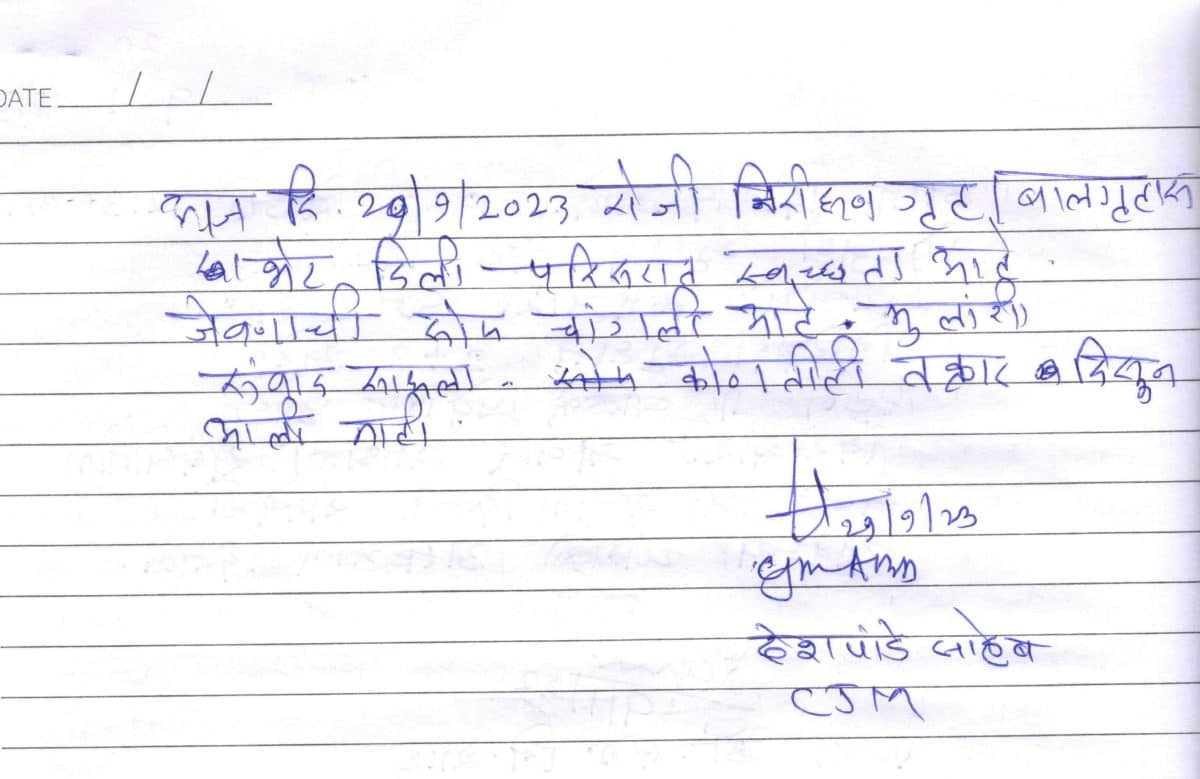 DATE / /
आज दि. 29/9/2023 रोजी निरीक्षण गृह, बालगृहास
भेट दिली परिसरात स्वच्छता आहे.
जेवणाची सोय चांगली आहे. मुलांशी
संवाद साधला. कोणतीही तक्रार दिसून
आली नाही.
29/9/23
CJM ABD
देशपांडे साहेब
CJM